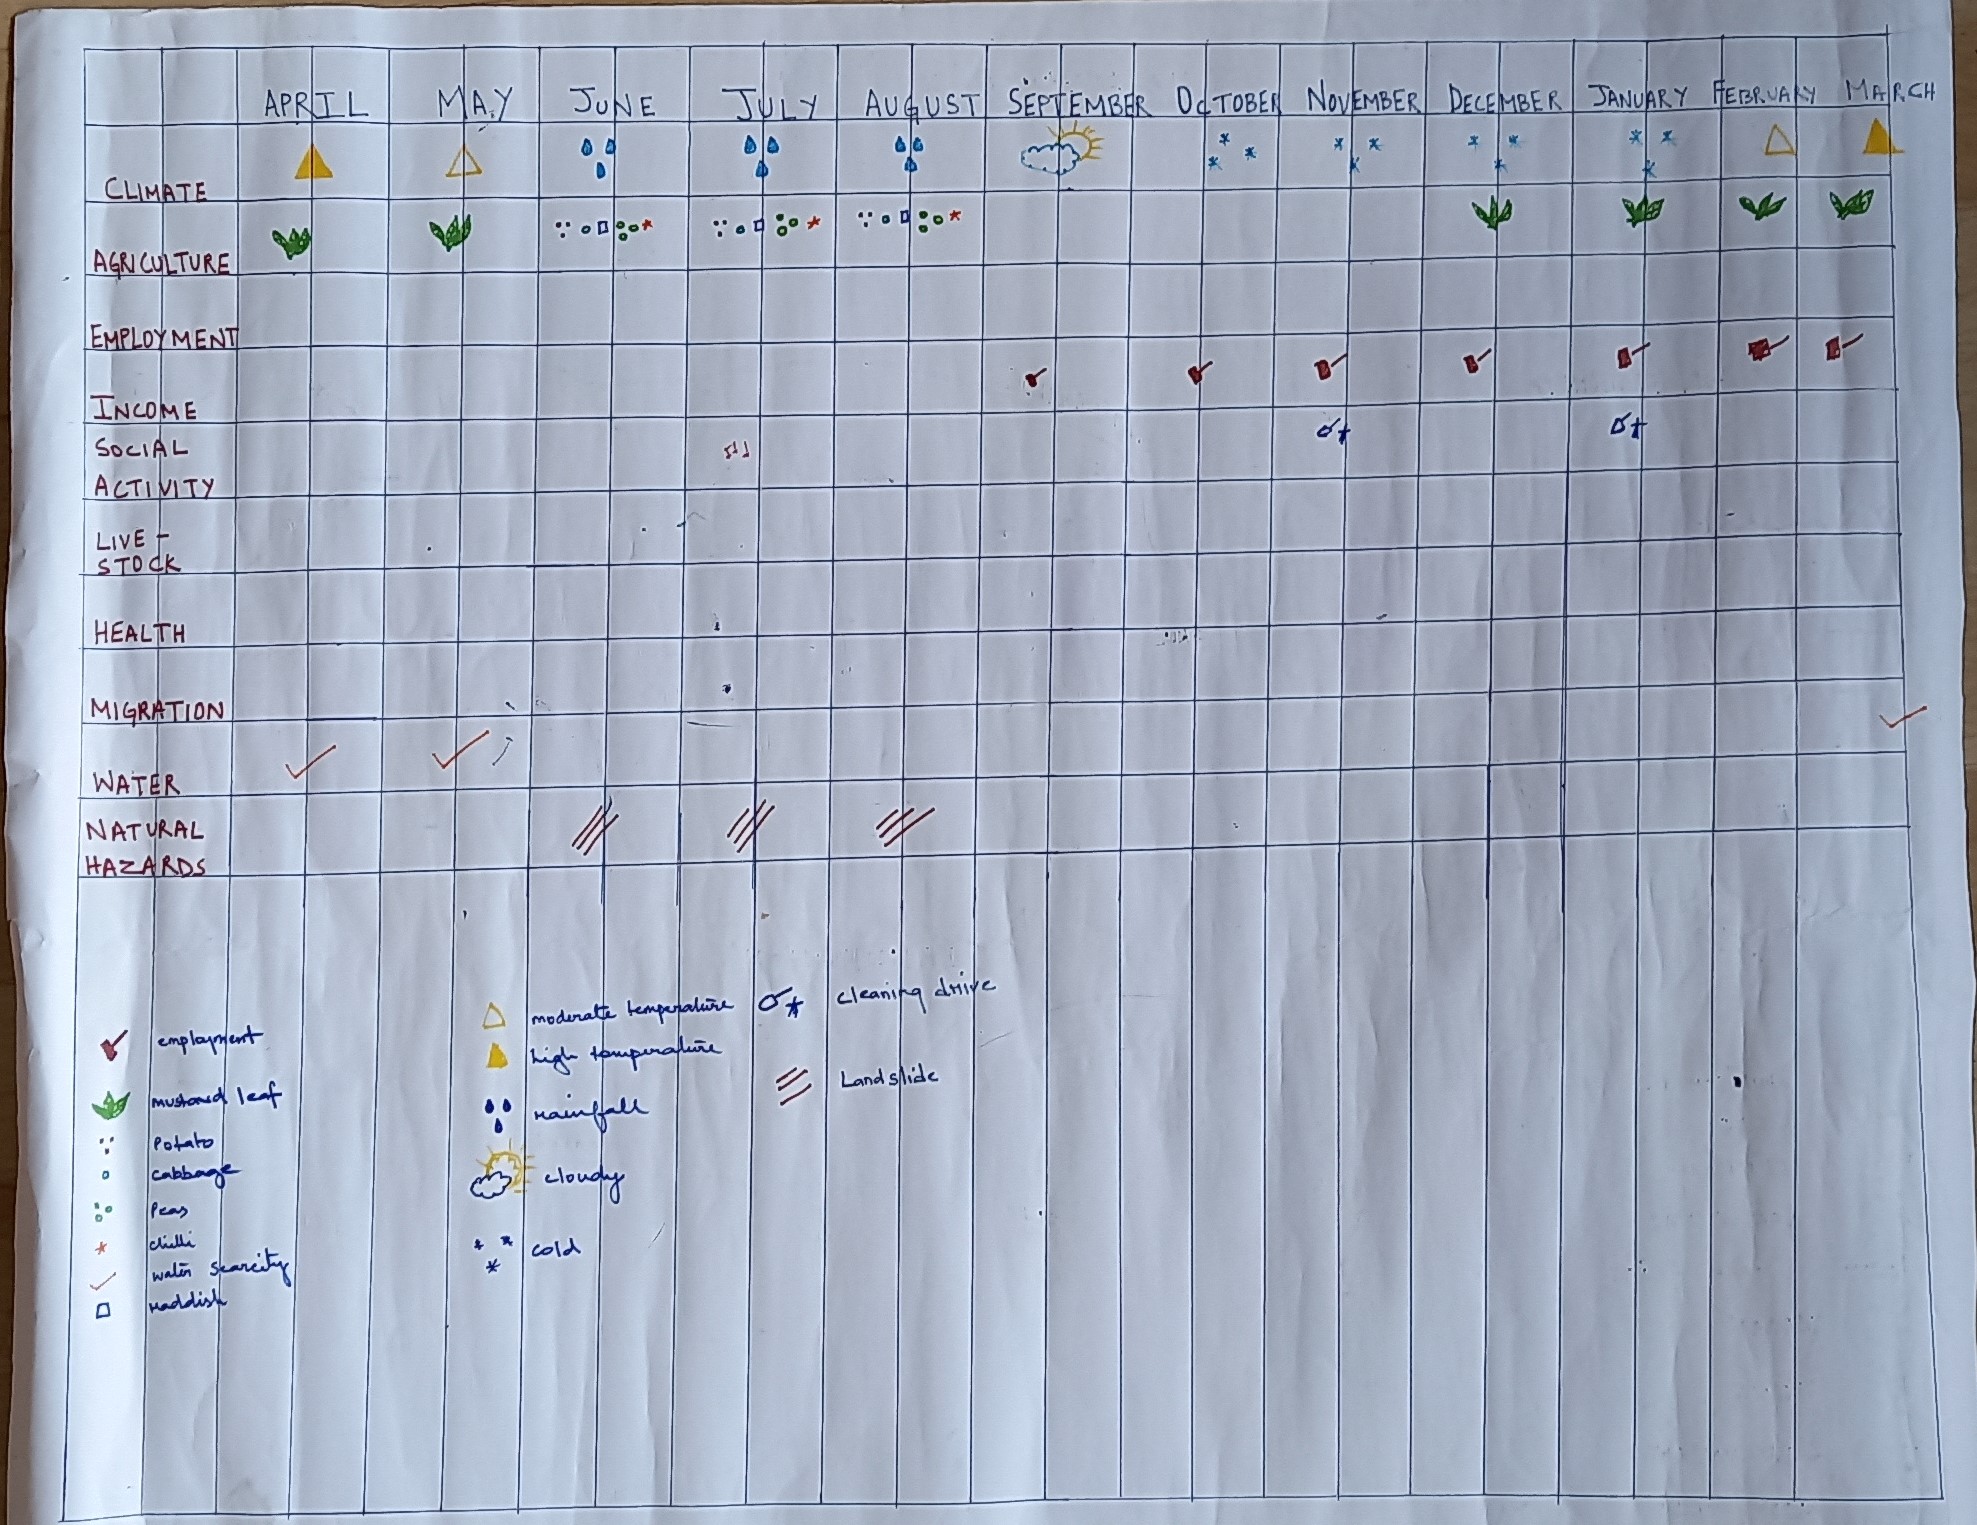 APRIL MAY JUNE JULY AUGUST SEPTEMBER OCTOBER NOVEMBER DECEMBER JANUARY FEBRUARY MARCH
CLIMATE
AGRICULTURE
EMPLOYMENT
INCOME
SOCIAL
ACTIVITY
LIVE-
STOCK
HEALTH
MIGRATION
WATER
NATURAL
HAZARDS
employment
mustard leaf
Potato
cabbage
Peas
chilli
water scarcity
raddish
moderate temperature
high temperature
rainfall
cloudy
cold
cleaning drive
Landslide